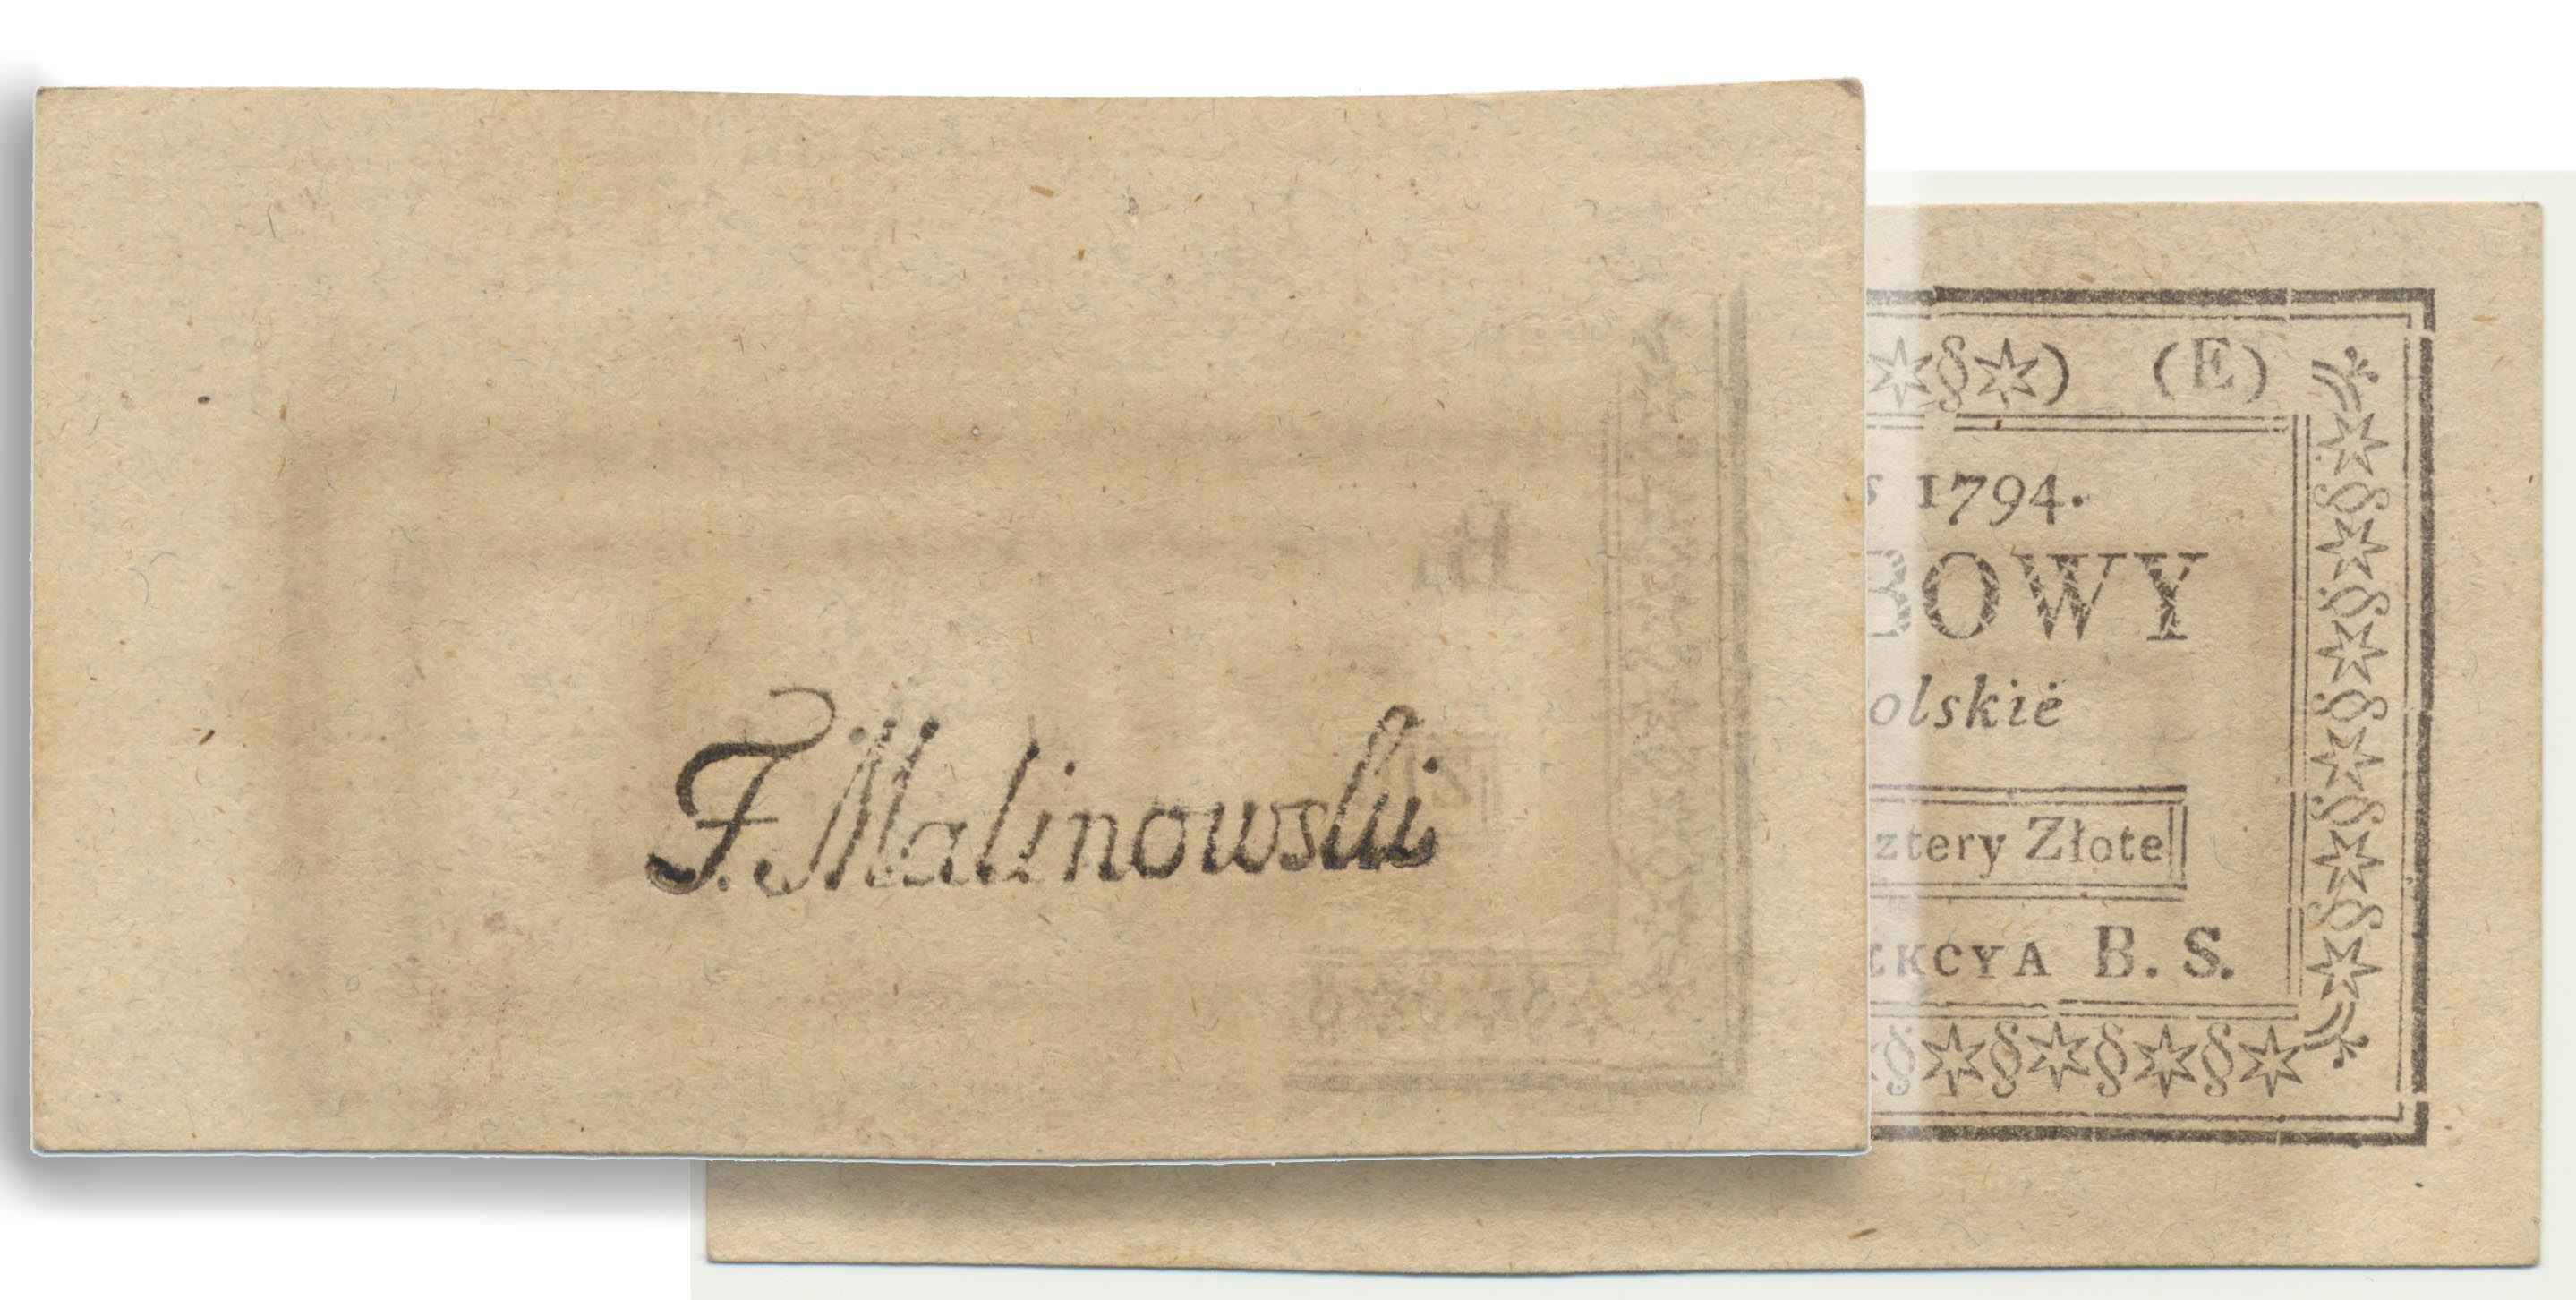 F. Malinowski
(E)
1794.
BOWY
olskié
ztery Złote
KCYA B. S.